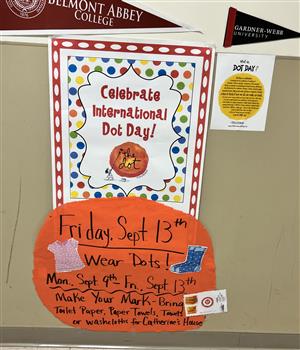 BELMONT ABBEY
COLLEGE
GARDNER-WEBB
UNIVERSITY
what is
DOT DAY?
Celebrate
International
Dot Day!
the
dot
Friday, Sept 13th
Wear Dots!
Mon, Sept 9th - Fri, Sept 13th
Make Your Mark - Bring
Toilet Paper, Paper Towels, Towels
or washcloths for Catherine's House